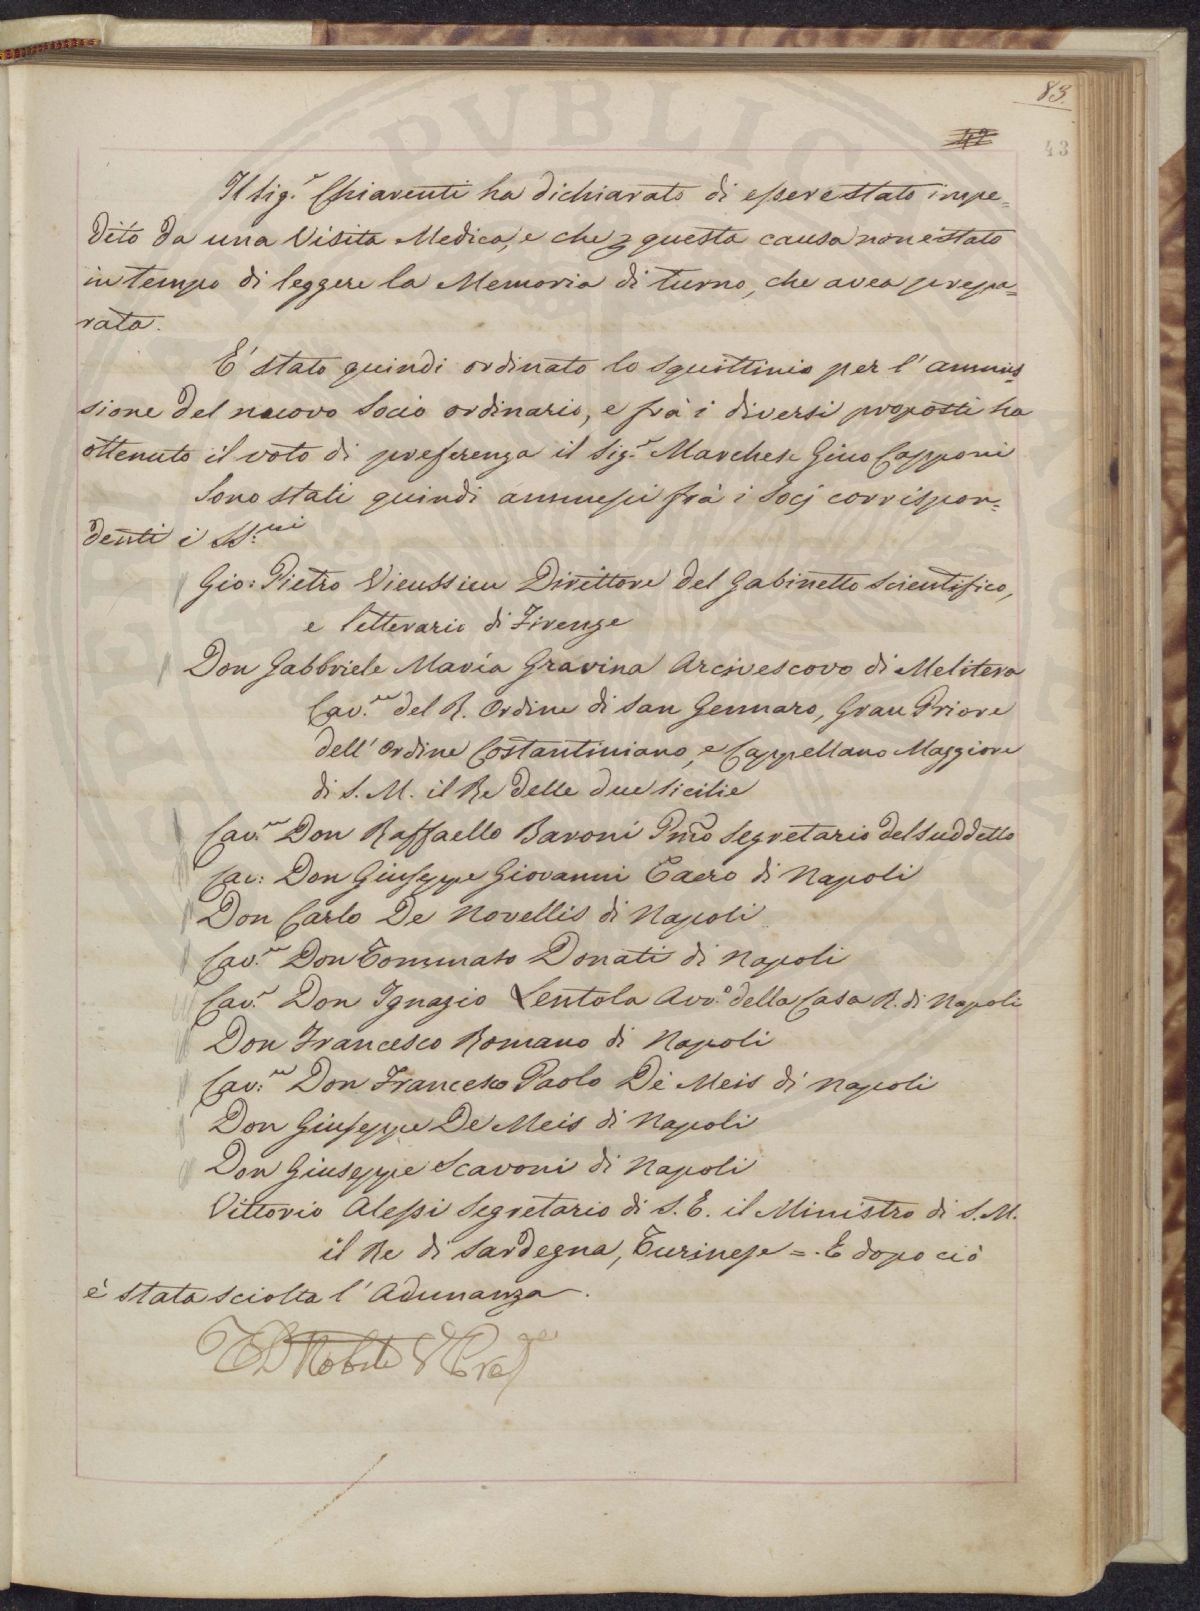 83.
42
43
Il Sig.r Chiarenti ha dichiarato di essere stato impe=
dito da una Visita Medica, e che p questa causa non è stato
in tempo di leggere la Memoria di turno, che avea prepa=
rata.
E' stato quindi ordinato lo squittinio per l'ammis=
sione del nuovo Socio ordinario, e frà i diversi proposti ha
ottenuto il voto di preferenza il Sig.r Marchese Gino Capponi
Sono stati quindi ammessi frà i Socj corrispon=
denti i SS.ri
Gio: Pietro Vieussieu Direttore del Gabinetto Scientifico,
e letterario di Firenze
Don Gabbriele Maria Gravina Arcivescovo di Melitera
Cav.re del R. Ordine di San Gennaro, Gran Priore
dell' Ordine Costantiniano, e Cappellano Maggiore
di S. M. il Re delle due Sicilie
Cav.re Don Raffaello Baroni Pmo Segretario del Suddetto
Don Giuseppe Giovanni Taero di Napoli
Don Carlo De Novellis di Napoli
Cav.re Don Tommaso Donati di Napoli
Cav.r Don Ignazio Lentola Avv.o della Casa R. di Napoli
Don Francesco Romano di Napoli
Cav.re Don Francesco Paolo De Meis di Napoli
Don Giuseppe De Meis di Napoli
Don Giuseppe Scavoni di Napoli
Vittorio Alessi Segretario di S. E. il Ministro di S. M.
il Re di Sardegna, Turinese =. E dopo ciò
è stata sciolta l'Adunanza.